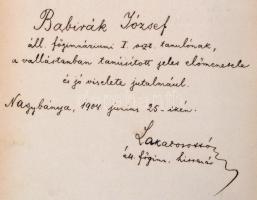 Babirák József
áll. főgimnáziumi I. o. tanulónak,
a vallástanban tanúsított jeles előmenetele
és jó viselete jutalmául.
Nagybánya, 1904. junius 25-ikén.
áll. főgimn.